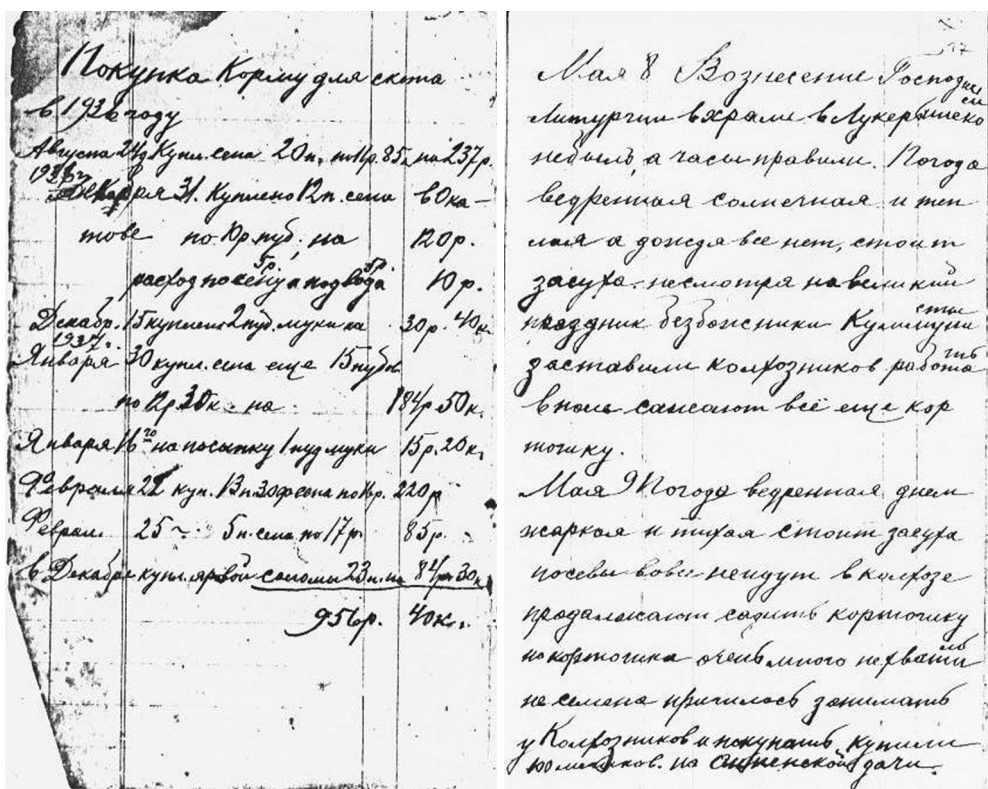 Покупка Корму для скота
в 1936 году
Августа 24д Купл. сена 20п. по 11р. 85к на 237р.
1936г
Января 31. Куплено 12п. сена в Ока-
тове по 10р. пуд. на 120р.
5р. 5р.
расход по сену и подвода 10р.
Декабр. 15 куплено 2 пуд. муки на 30р. 40к
1937г.
Января 30 купл. сена еще 15 пудов
по 12р 30к на 184р. 50к.
Января 16го на посыпку 1 пуд муки 15р. 20к.
Февраля 22 куп. 13п. 30ф сена по 16р. 220р
Феврал. 25 5п. сена по 17р. 85р.
в Декабре купл. яровой соломы 23п. на 84р. 30к
956р. 40к.
Мая 8 Вознесение Господне
Литургии в храме в Лукерь
небыло, а часы правили. Погода
ведренная солнечная и теп
лая а дождя все нет, стоит
засуха. несмотря на великий
праздник безбожники Куммунисты
заставили колхозников работать
в поле сажают всё еще кор
тошку.
Мая 9 Погода ведренная днем
жаркая и тихая стоит засуха
посевы вовсе нейдут в колхозе
продалжают садить кортошку
но кортошки очень много нехватило
не семена пришлось занимать
у Колхозников и покупать, купили
на дачи.